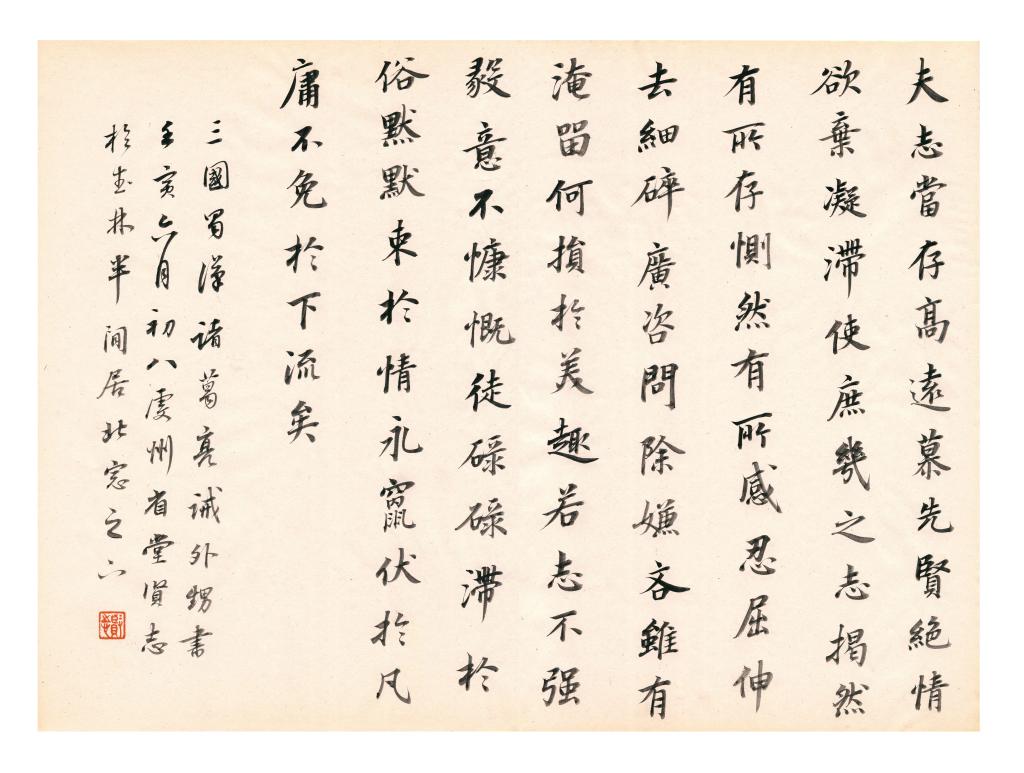 夫志當存髙遠慕先賢絶情
欲棄凝滯使庶幾之志揭然
有所存惻然有所感忍屈伸
去細碎廣咨問除嫌吝雖有
淹留何損於美趣若志不强
毅意不慷慨徒碌碌滯於
俗默默束於情永竄伏於凡
庸不免於下流矣
三國蜀漢諸葛亮誡外甥書
壬寅六月初八虔州省堂賢志
於武林半間居北窓之下